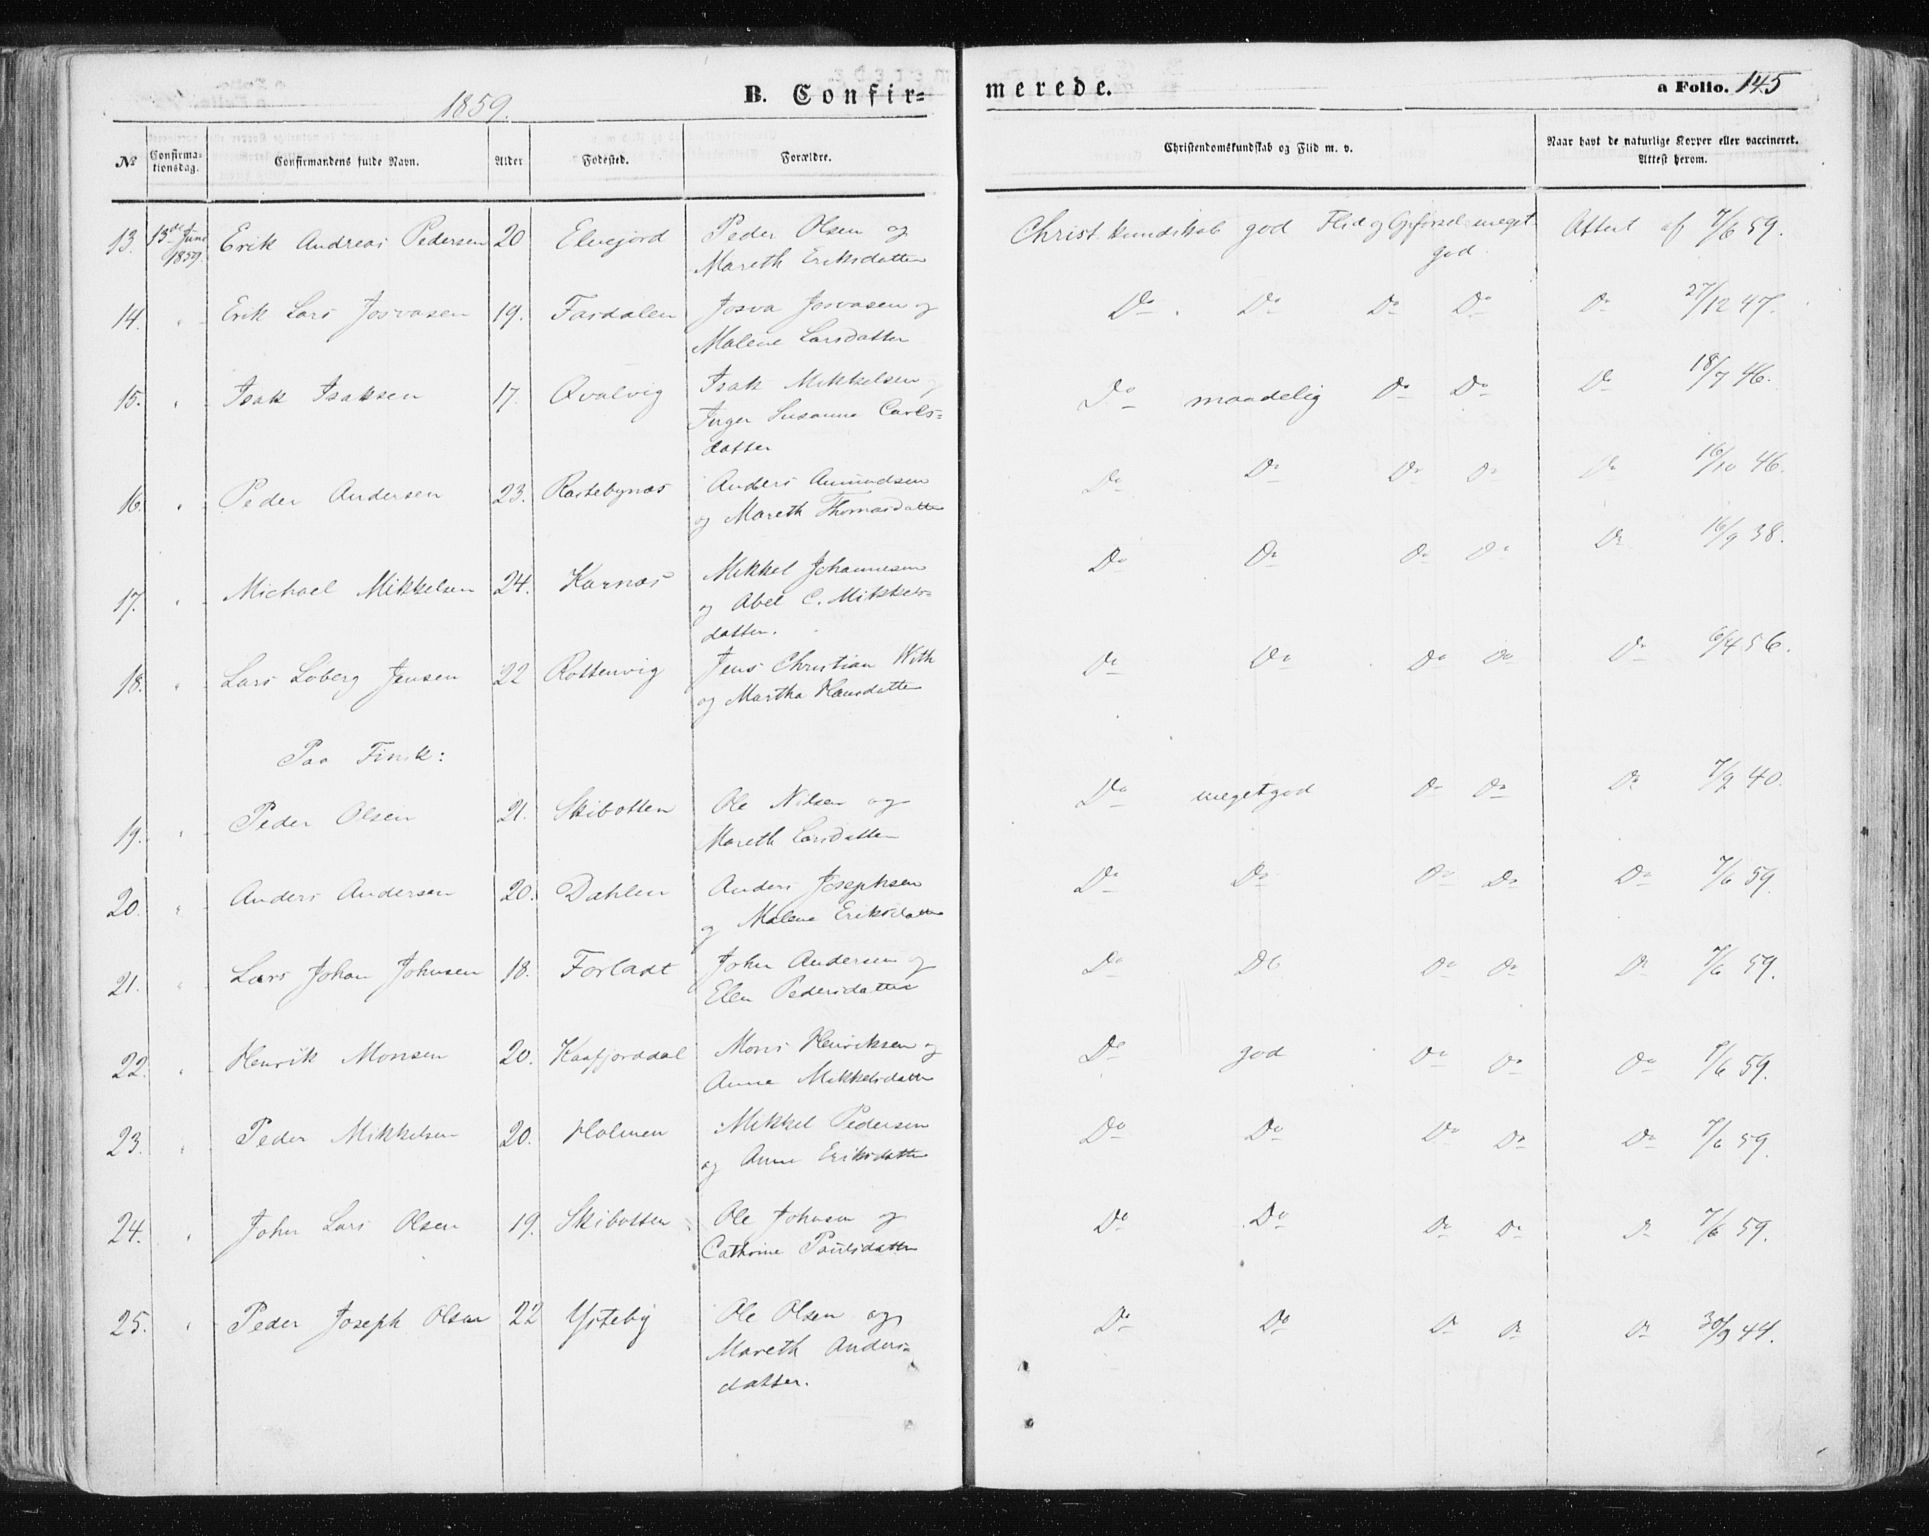 1859.
B. Confir=
merede.
a Folio. 145
No
Confirma-
tionsdag.
Confirmandens fulde Navn.
Alder
Fødested.
Forældre.
Christendomskundskab og Flid m. v.
Naar havt de naturlige Kopper eller vaccineret.
Attest herom.
13. 13de Juni 1859. Erik Andreas Pedersen 20 Elvejord Peder Olsen og
Mareth Eriksdatter
Christ. kundskab god Flid og Opførsel meget
god
Attest af 7/6 59.
14. " Erik Lars Josvasen 19. Fasdalen Josva Josvasen og
Malene Larsdatter
Do Do Do Do Do 27/12 47.
15. " Isak Isaksen 17. Qvalvig Isak Mikkelsen og
Inger Susanna Carls=
datter
Do maadelig Do Do Do 18/7 46.
16. " Peder Andersen 23. Rastebynæs Anders Amundsen
og Mareth Thomasdatter
Do Do Do Do Do 16/10 46.
17. " Michael Mikkelsen 24. Karnæs Mikkel Johannesen
og Abel C. Mikkels=
datter.
Do Do Do Do Do 16/9 38.
18. " Lars Loberg Jensen 22 Rottenvig Jens Christian With
og Martha Hansdatter
Do Do Do Do Do 6/4 56.
Paa Finsk:
19. " Peder Olsen 21. Skibotten Ole Nilsen og
Mareth Larsdatter
Do megetgod Do Do Do 7/9 40.
20. " Anders Andersen 20. Dahlen Anders Josephsen
og Malene Eriksdatter
Do Do Do Do Do 7/6 59.
21. " Lars Johan Johnsen 18. Forladt John Andersen og
Elen Pedersdatter
Do Do Do Do Do 7/6 59.
22. " Henrik Monsen 20. Kaafjorddal Mons Henriksen og
Anne Mikkelsdatter
Do god Do Do Do 8/6 59.
23. " Peder Mikkelsen 20. Holmen Mikkel Pedersen
og Anne Eriksdatter
Do Do Do Do Do 7/6 59.
24. " John Lars Olsen 19. Skibotten Ole Johnsen og
Cathrine Paulsdatter
Do Do Do Do Do 7/6 59.
25. " Peder Joseph Olsen 22 Ysteby Ole Olsen og
Mareth Anders=
datter.
Do Do Do Do Do 30/9 44.